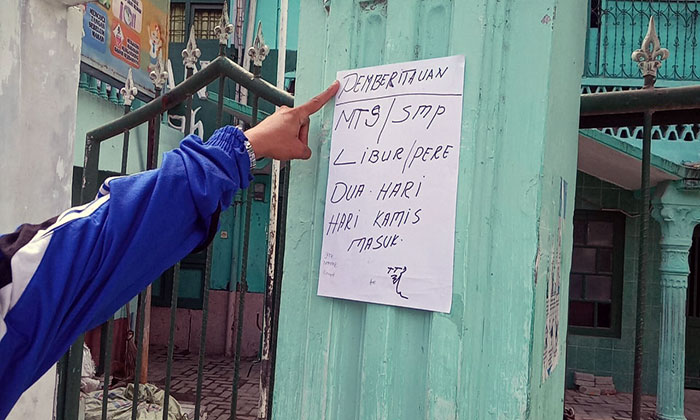 PEMBERITAUAN
MTS/SMP
LIBUR/PERE
DUA·HARI
HARI KAMIS
MASUK.
TTG